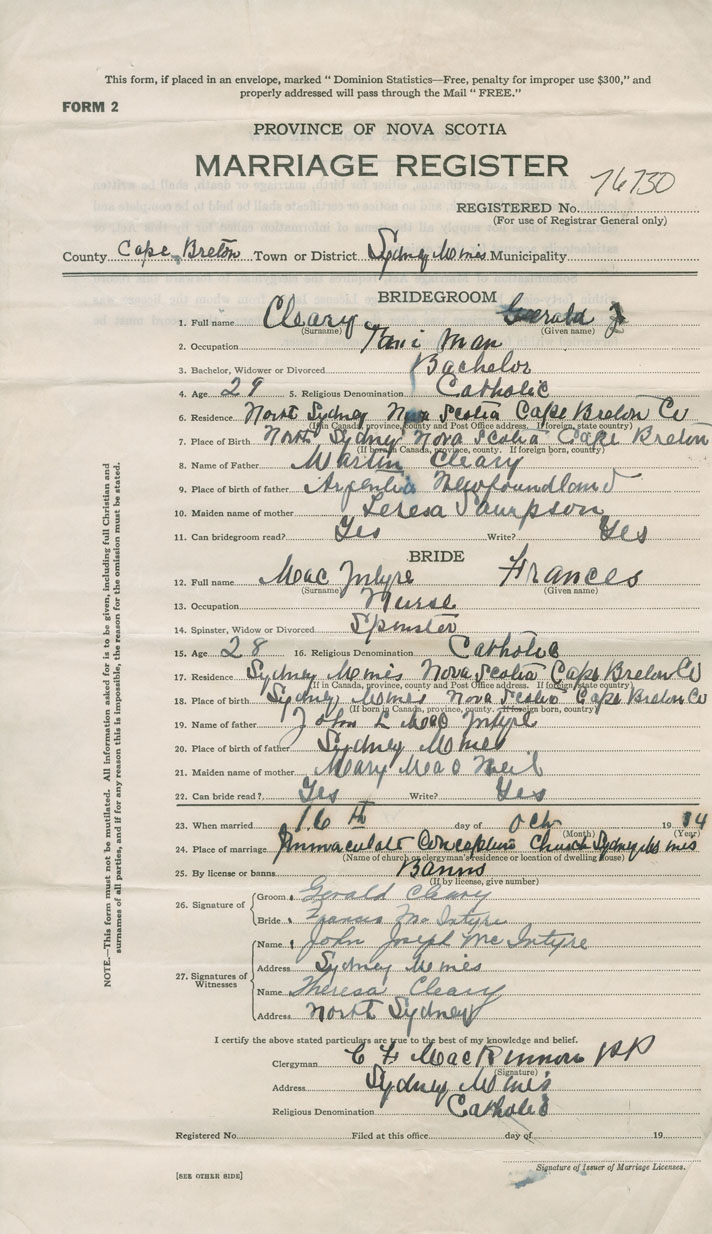 This form, if placed in an envelope, marked " Dominion Statistics—Free, penalty for improper use $300," and
properly addressed will pass through the Mail " FREE."
FORM 2
PROVINCE OF NOVA SCOTIA
MARRIAGE REGISTER
76730
REGISTERED No.
(For use of Registrar General only)
County Cape Breton Town or District Sydney Mines Municipality
BRIDEGROOM
1. Full name Cleary Gerald J
(Surname) (Given name)
2. Occupation Taxi Man
3. Bachelor, Widower or Divorced Bachelor
4. Age 29 5. Religious Denomination Catholic
6. Residence North Sydney Nova Scotia Cape Breton Co
(If in Canada, province, county and Post Office address. If foreign, state country)
7. Place of Birth North Sydney Nova Scotia Cape Breton
(If born in Canada, province, county. If foreign born, country)
8. Name of Father Martin Cleary
9. Place of birth of father Argentia Newfoundland
10. Maiden name of mother Teresa
11. Can bridegroom read? Yes Write? Yes
BRIDE
12. Full name Mac Intyre Frances
(Surname) (Given name)
13. Occupation Nurse
14. Spinster, Widow or Divorced Spinster
15. Age 28 16. Religious Denomination Catholic
17. Residence Sydney Mines Nova Scotia Cape Breton Co
(If in Canada, province, county and Post Office address. If foreign, state country)
18. Place of birth Sydney Mines Nova Scotia Cape Breton Co
(If born in Canada, province, county. If foreign born, country)
19. Name of father John L Mac Intyre
20. Place of birth of father Sydney Mines
21. Maiden name of mother Mary Mac Neil
22. Can bride read? Yes Write? Yes
23. When married 16th day of Oct 19
(Month) (Year)
24. Place of marriage Immaculate Conception Church Sydney Mines
(Name of church or clergyman's residence or location of dwelling house)
25. By license or banns Banns
(If by license, give number)
26. Signature of
Groom Gerald Cleary
Bride Francis Mc Intyre
27. Signatures of Witnesses
Name John Joseph Mc Intyre
Address Sydney Mines
Name Theresa Cleary
Address North Sydney
I certify the above stated particulars are true to the best of my knowledge and belief.
Clergyman C F MacKinnon PP
(Signature)
Address Sydney Mines
Religious Denomination Catholic
Registered No. Filed at this office day of 19
Signature of Issuer of Marriage Licenses.
[SEE OTHER SIDE]
NOTE.—This form must not be mutilated. All information asked for is to be given, including full Christian and
surnames of all parties, and if for any reason this is impossible, the reason for the omission must be stated.